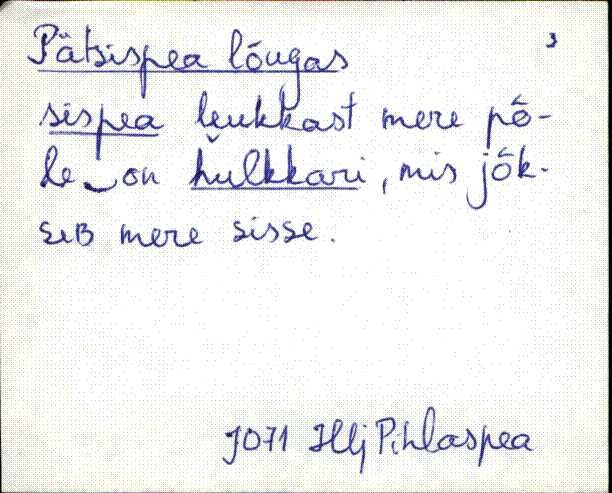 3
Pätsispea lõugas
sispea leukkast mere põ-
le on hulkkari, mis jõk-
seB mere sisse.
J071 Hlj Pihlaspea